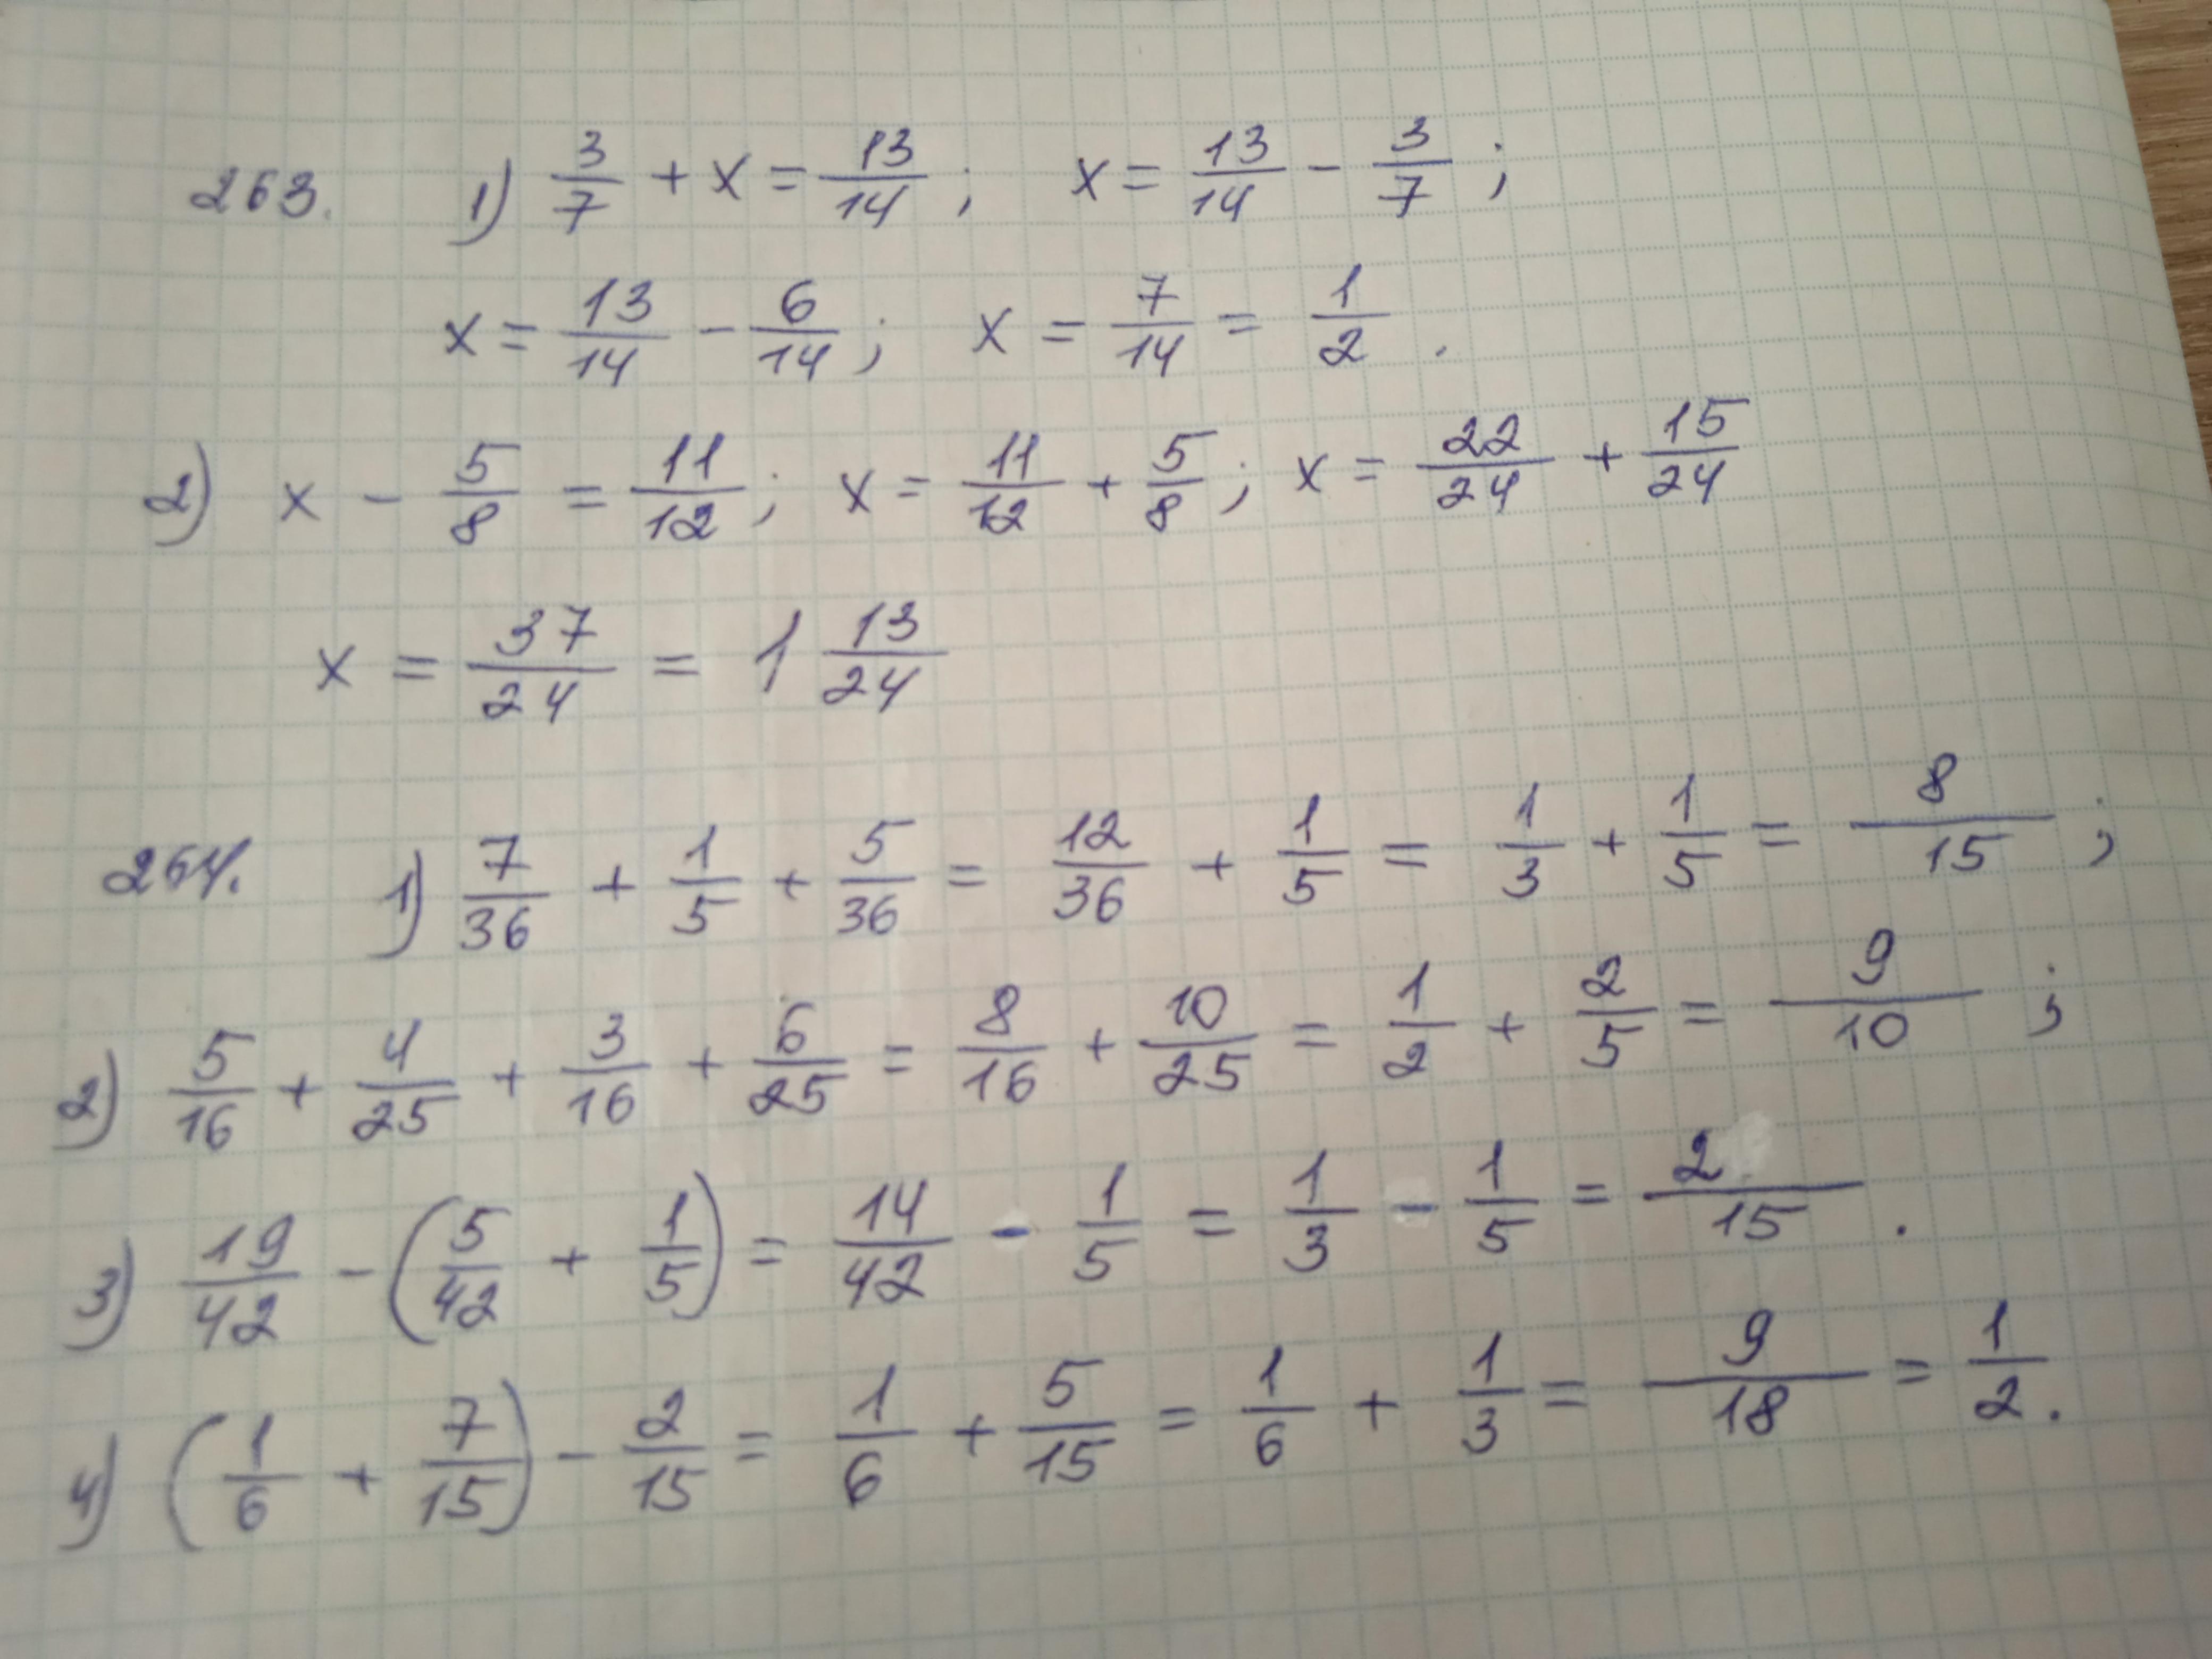 263. 1) 3/7 + x = 13/14; x = 13/14 - 3/7;
x = 13/14 - 6/14; x = 7/14 = 1/2.
2) x - 5/8 = 11/12; x = 11/12 + 5/8; x = 22/24 + 15/24
x = 37/24 = 1 13/24
264. 1) 7/36 + 1/5 + 5/36 = 12/36 + 1/5 = 1/3 + 1/5 = 8/15;
2) 5/16 + 4/25 + 3/16 + 6/25 = 8/16 + 10/25 = 1/2 + 2/5 = 9/10;
3) 19/42 - (5/42 + 1/5) = 14/42 - 1/5 = 1/3 - 1/5 = 2/15.
4) (1/6 + 7/15) - 2/15 = 1/6 + 5/15 = 1/6 + 1/3 = 9/18 = 1/2.